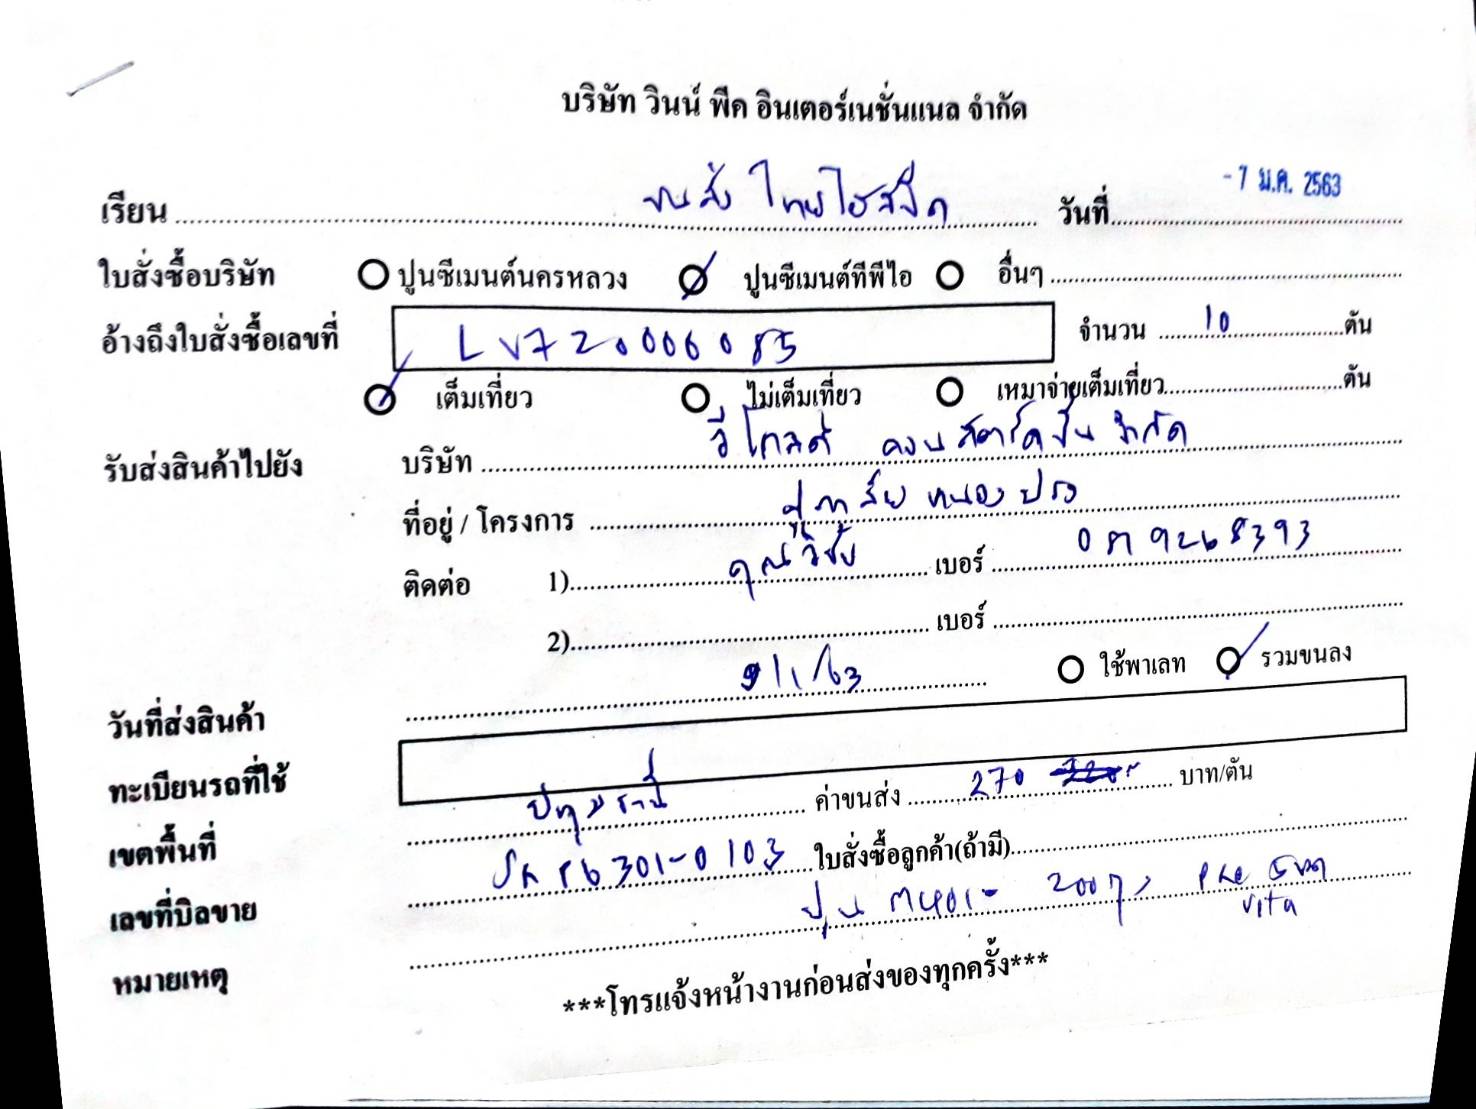 บริษัท วินน์ พีค อินเตอร์เนชั่นแนล จำกัด
เรียน ขนส่ง ไทยไฮสปีด วันที่ - 7 ม.ค. 2563
ใบสั่งซื้อบริษัท ปูนซีเมนต์นครหลวง ปูนซีเมนต์ทีพีไอ อื่นๆ
อ้างถึงใบสั่งซื้อเลขที่ LV720006085 จำนวน 10 ตัน
เต็มเที่ยว ไม่เต็มเที่ยว เหมาจ่ายเต็มเที่ยว ตัน
รับส่งสินค้าไปยัง บริษัท วี โกลด์ คอนสตรัคชั่น จำกัด
ที่อยู่ / โครงการ หนองปรือ
ติดต่อ 1) คุณวิชัย เบอร์
2) เบอร์
วันที่ส่งสินค้า 9/1/63 ใช้พาเลท รวมขนลง
ทะเบียนรถที่ใช้
เขตพื้นที่ ปทุมธานี ค่าขนส่ง 270 บาท/ตัน
เลขที่บิลขาย 6301-0103 ใบสั่งซื้อลูกค้า(ถ้ามี)
หมายเหตุ ปูน
***โทรแจ้งหน้างานก่อนส่งของทุกครั้ง***